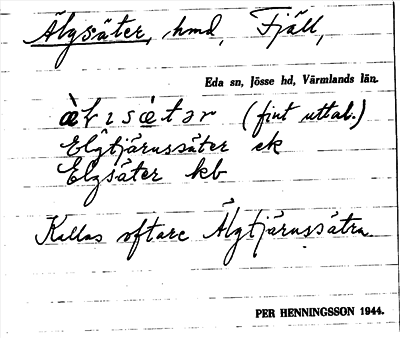 Älgsäter, hmd, Fjäll,
Eda sn, Jösse hd, Värmlands län.
(fint uttal.)
Elgtjärnssäter ek
Elgsäter kb
Kallas oftare Älgtjärnssätra
PER HENNINGSSON 1944.